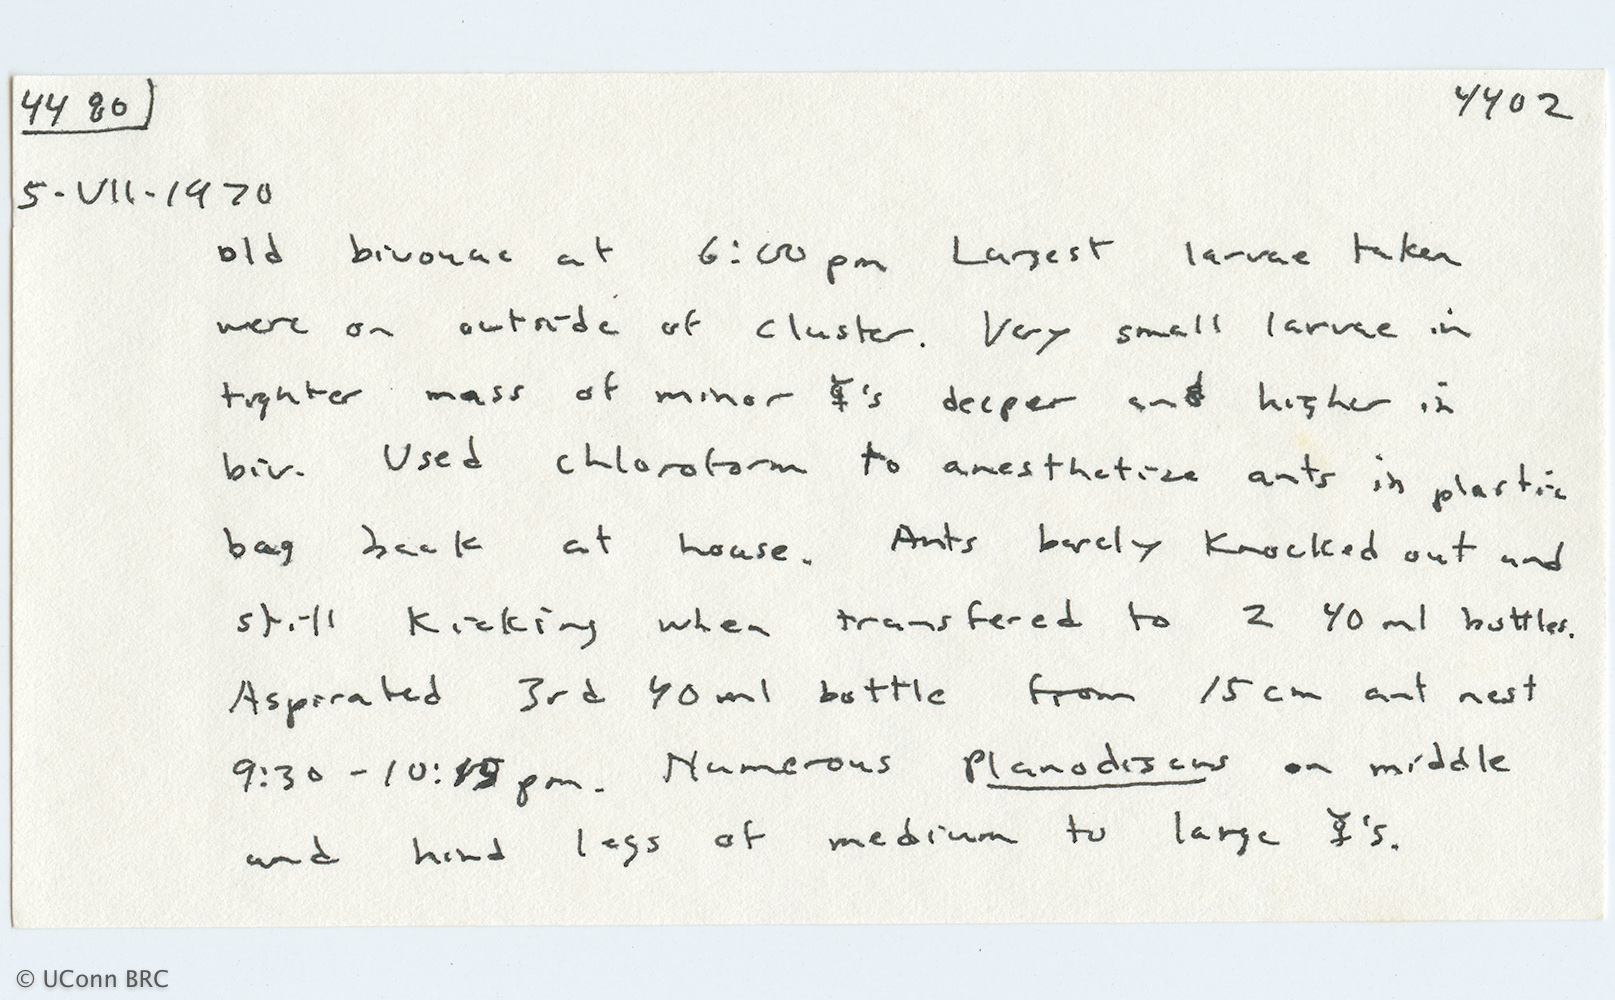 4480 4402
5-VII-1970
old bivouac at 6:00 pm Largest larvae taken
were on outside of cluster. Very small larvae in
tighter mass of minor ☿'s deeper and higher in
biv. Used chloroform to anesthetize ants in plastic
bag back at house. Ants barely knocked out and
still kicking when transfered to 2 40 ml bottles.
Aspirated 3rd 40 ml bottle from 15 cm ant nest
9:30 - 10:15 pm. Numerous Planodiscus on middle
and hind legs of medium to large ☿'s.
© UConn BRC